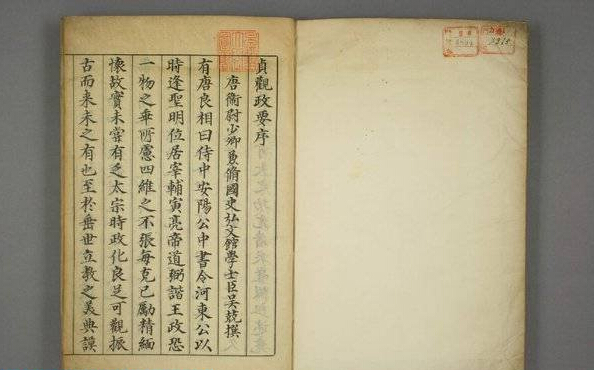 貞觀政要序
唐衛尉少卿兼脩國史弘文館學士臣吳兢撰
有唐良相曰侍中安陽公中書令河東公以
時逢聖明位居宰輔寅亮帝道弼諧王政恐
一物之乖所慮四維之不張每克己勵精緬
懷故實未甞有乏太宗時政化良足可觀振
古而来未之有也至於垂世立教之美典謨